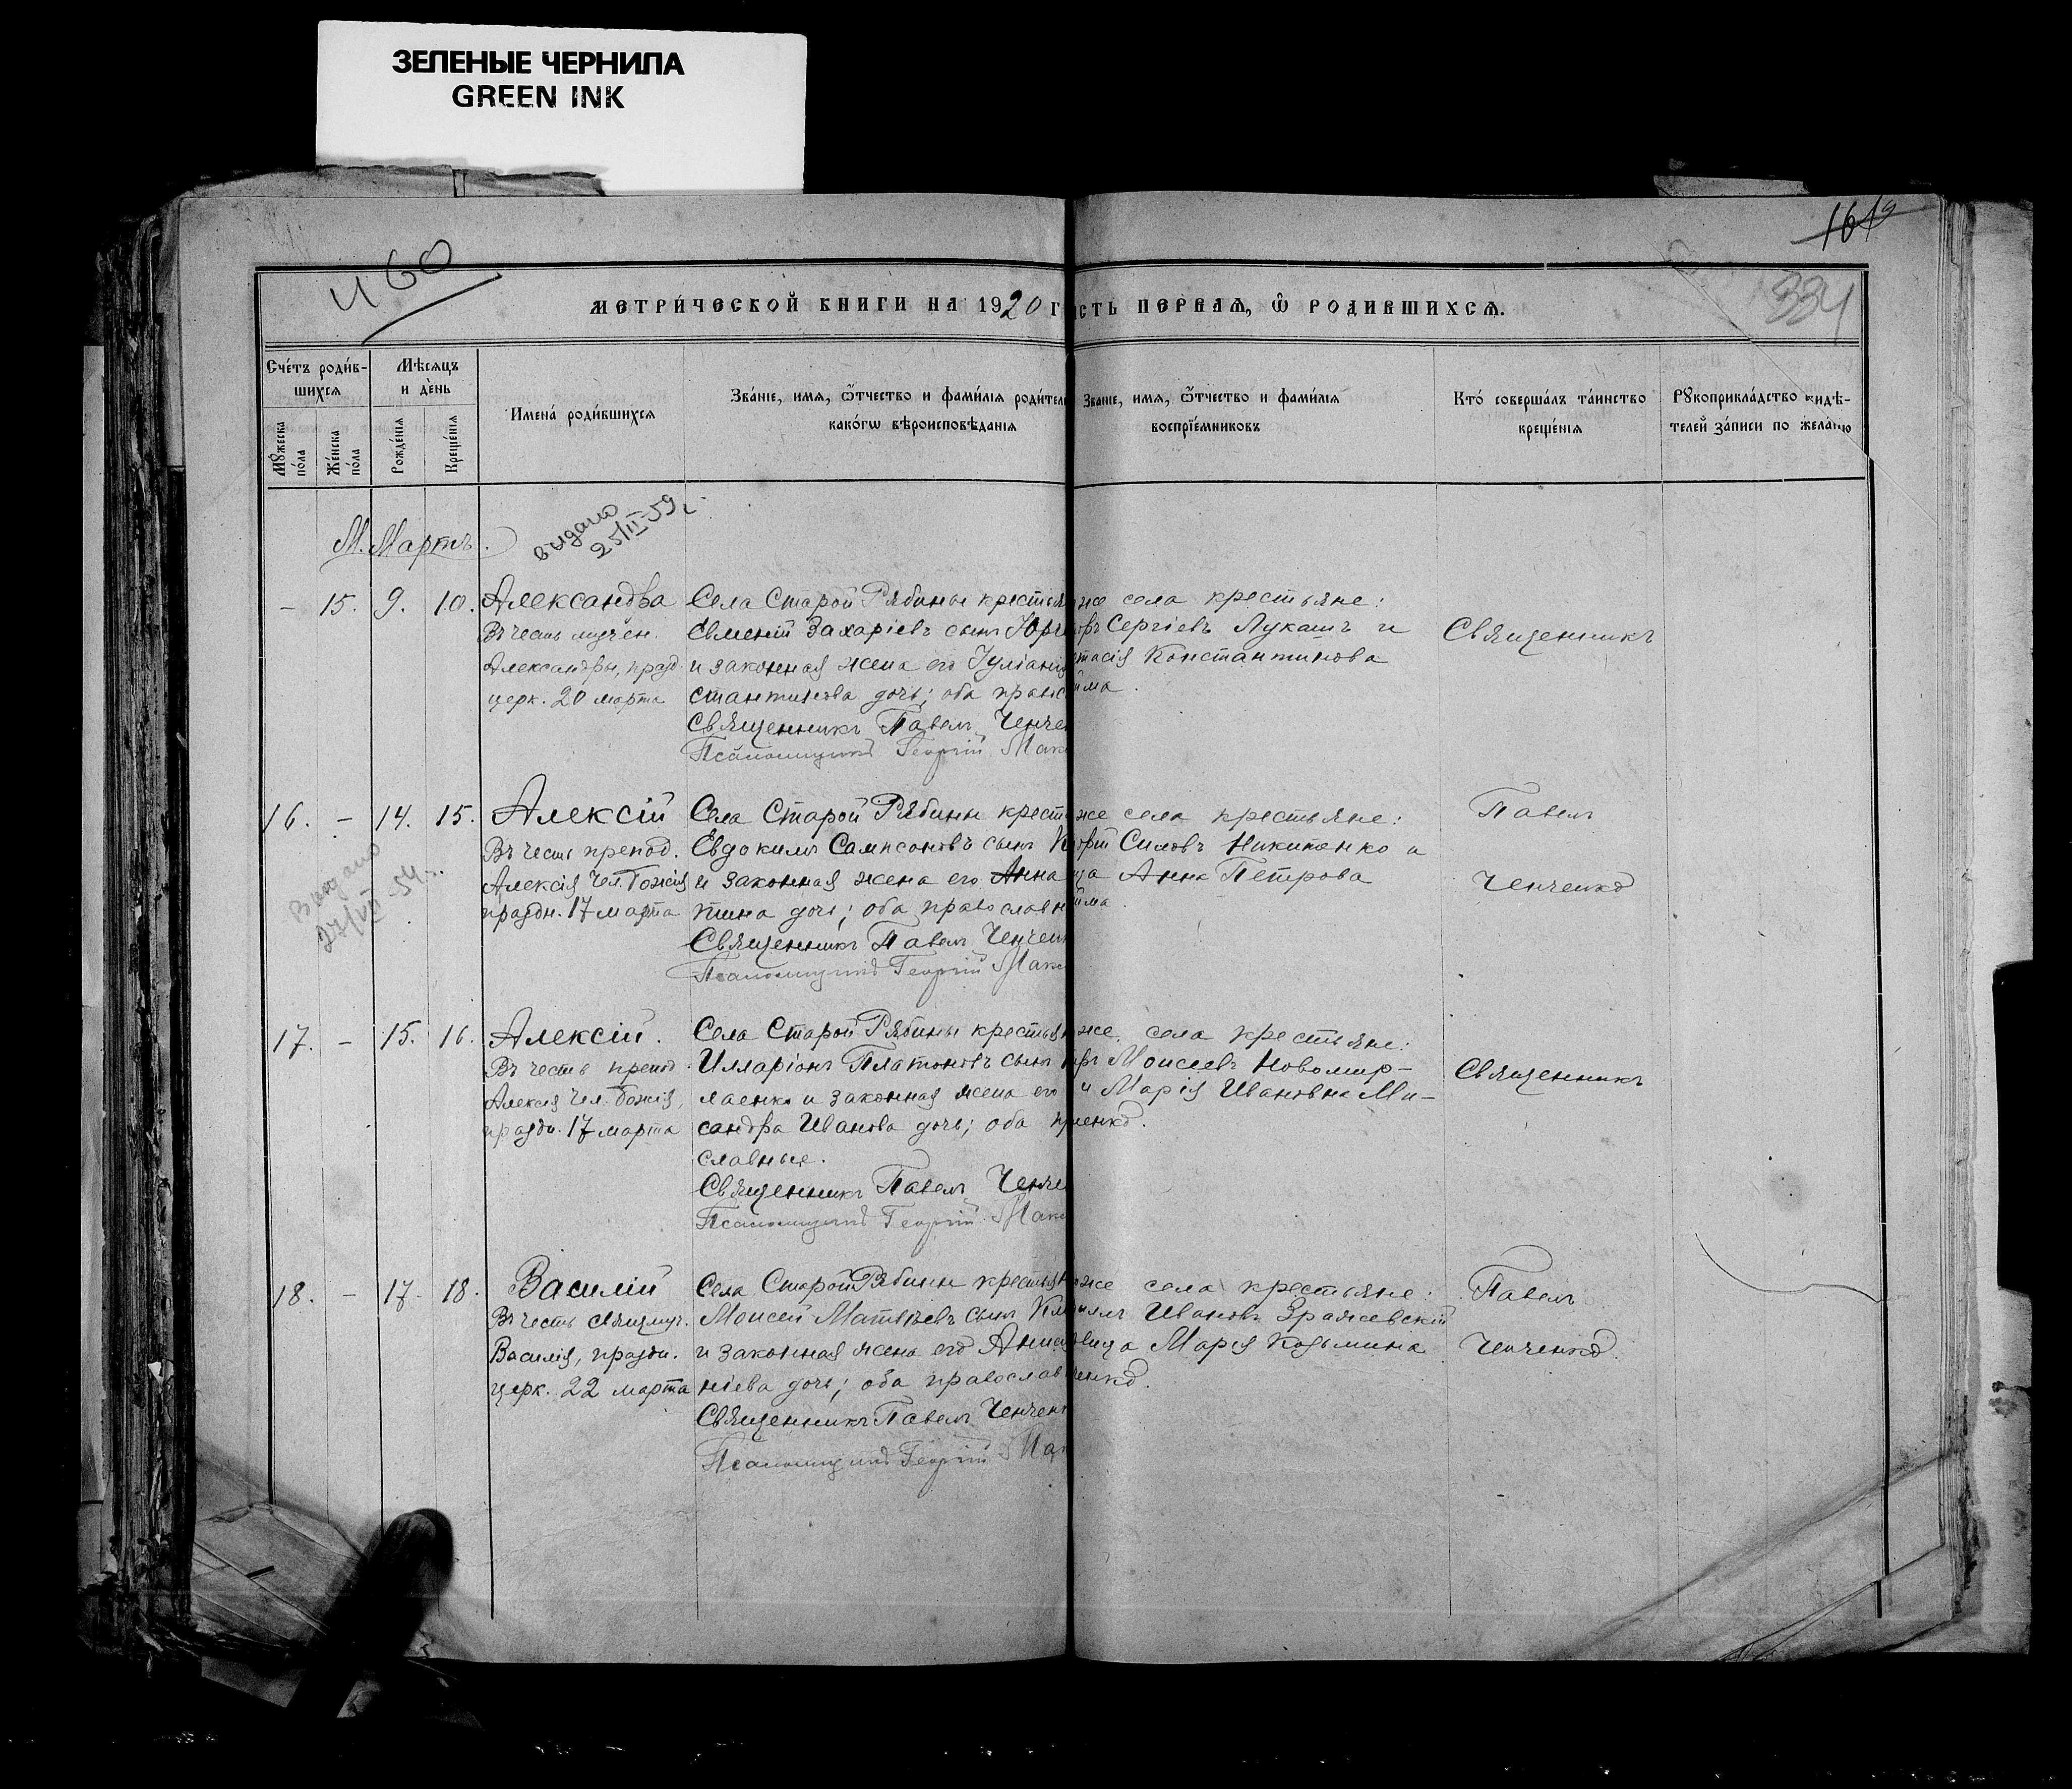 ЗЕЛЕНЫЕ ЧЕРНИЛА
GREEN INK
460
1619
334
МЕТРИ́ЧЕСКОЙ КНИГИ НА 1920 г
сть ПЕРВАѦ, Ѿ РОДИВШИХСѦ.
Сче́тъ роди́в-
шихсѧ
Мѣсѧцъ
и де́нь
Мꙋ́жеска по́ла
Же́нска по́ла
Рожде́нїѧ
Креще́нїѧ
Имена̀ роди́вшихсѧ
Зва́нїе, имѧ, ѿтчество и фами́лїѧ роди́тел
како́гѡ вѣроисповѣ́данїѧ
Зва́нїе, имѧ, ѿтчество и фами́лїѧ
воспрїе́мниковъ
Кто́ соверша́лъ та́инство
креще́нїѧ
Рꙋкоприкла́дство свидѣ-
телей за́писи по жела́нїю
М. Мартъ.
выдано
25/II-59г.
– 15. 9. 10. Александра
Въ честь мучен.
Александры, празд.
церк. 20 марта
Села Старой Рябины крестья
Евменій Захаріевъ сынъ Юрч
и законная жена его Іуліанія
стантинова дочь; оба правос
Священникъ Павелъ Ченче
Псаломщикъ Георгій Мак
же села крестьяне:
Сергіевъ Лукашъ и
стасія Константинова
има.
Священникъ
16. – 14. 15. Алексій
Въ честь препод.
Алексія Чел. Божія
праздн. 17 марта
Выдано
27/VII-54г.
Села Старой Рябины крест
Евдокимъ Сампсоновъ сынъ
и законная жена его Анна
тина дочь; оба православн
Священникъ Павелъ Ченчен
Псаломщикъ Георгій Мак
же села крестьяне:
орій Симовъ Никитенко и
ца Анна Петрова
има.
Павелъ
Ченченко
17. – 15. 16. Алексій.
Въ честь препод.
Алексія Чел. Божія,
праздн. 17 марта
Села Старой Рябины крестьян
Илларіонъ Платоновъ сынъ
лаенко и законная жена его
сандра Иванова дочь; оба п
славные.
Священникъ Павелъ Ченче
Псаломщикъ Георгій Мак
же села крестьяне:
Моисеевъ Новомир-
и Марія Ивановна Ми-
ленко.
Священникъ
18. – 17. 18. Василій
Въ честь священмуч.
Василія, праздн.
церк. 22 марта
Села Старой Рябины крестьян
Моисей Матвѣевъ сынъ
и законная жена его Анна
ніева дочь; оба православ
Священникъ Павелъ Ченчен
Псаломщикъ Георгій Мак
же села крестьяне:
Ивановъ Зражевскій
вица Марія Козьмина
ченко.
Павелъ
Ченченко.